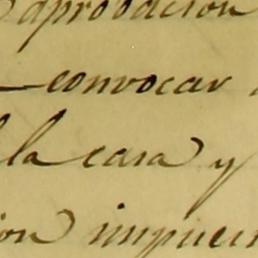 aprobacion
convocar
la casa y
ion impues